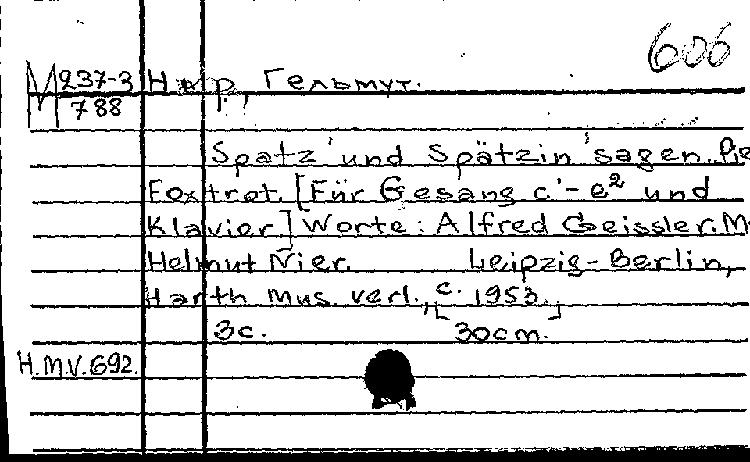 606
М 237-3 Нир, Гельмут.
788
Spatz und Spätzin sagen. Pie
Foxtrot. [Für Gesang c'-e² und
Klavier] Worte: Alfred Geissler. M.
Helmut Nier. Leipzig-Berlin,
Harth mus. verl., c. 1953.
3c. 30cm.
H.M.V.692.